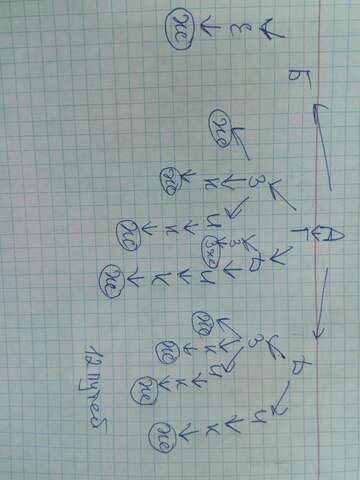 А
Б Г Д
В З Д З И
Е К И З И К И К
ж ж ж К К ж ж К ж
ж ж ж
12 путей